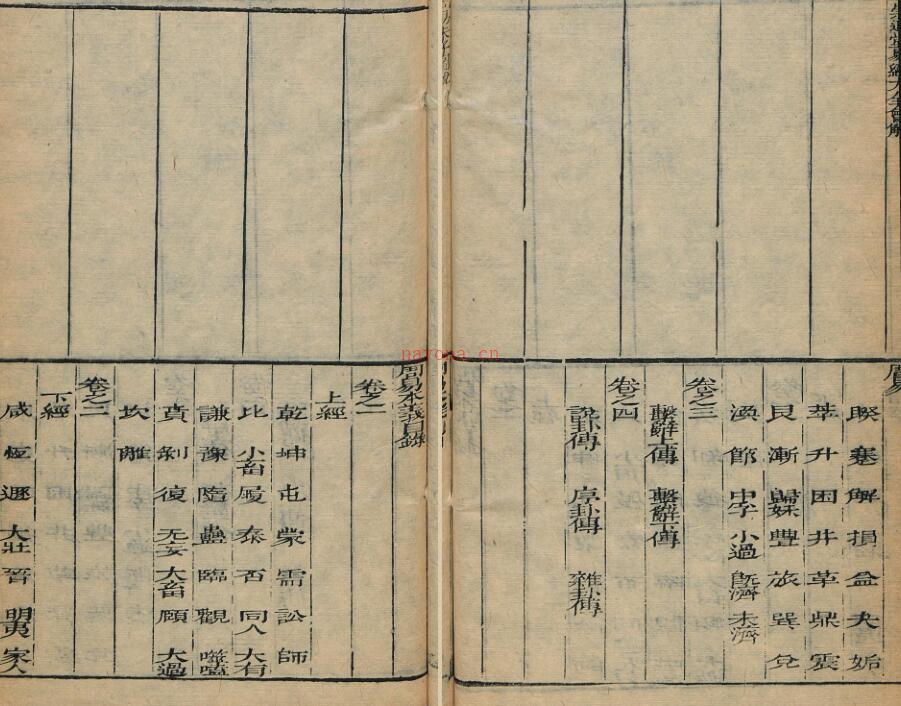 周易本義目錄
卷之一
上經
乾 坤 屯 蒙 需 訟 師
比 小畜 履 泰 否 同人 大有
謙 豫 隨 蠱 臨 觀 噬嗑
賁 剝 復 无妄 大畜 頤 大過
坎 離
卷之二
下經
咸 恆 遯 大壯 晉 明夷 家人
周易
睽 蹇 解 損 益 夬 姤
萃 升 困 井 革 鼎 震
艮 漸 歸妹 豐 旅 巽 兌
渙 節 中孚 小過 既濟 未濟
卷之三
繫辭上傳 繫辭下傳
卷之四
說卦傳 序卦傳 雜卦傳
nayona.cn